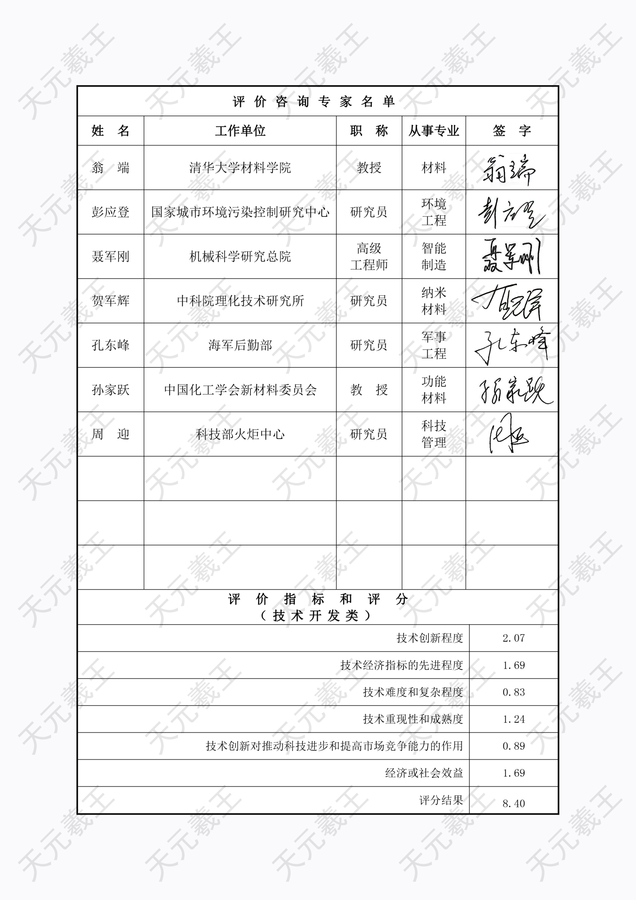 评价咨询专家名单
姓 名 工作单位 职 称 从事专业 签 字
翁 端 清华大学材料学院 教授 材料 翁端
彭应登 国家城市环境污染控制研究中心 研究员 环境 彭应登
工程
聂军刚 机械科学研究总院 高级 智能 聂军刚
工程师 制造
贺军辉 中科院理化技术研究所 研究员 纳米
材料
孔东峰 海军后勤部 研究员 军事 孔东峰
工程
孙家跃 中国化工学会新材料委员会 教 授 功能 孙家跃
材料
周 迎 科技部火炬中心 研究员 科技 周迎
管理
评价指标和评分
（技术开发类）
技术创新程度 2.07
技术经济指标的先进程度 1.69
技术难度和复杂程度 0.83
技术重现性和成熟度 1.24
技术创新对推动科技进步和提高市场竞争能力的作用 0.89
经济或社会效益 1.69
评分结果 8.40
天元羲王